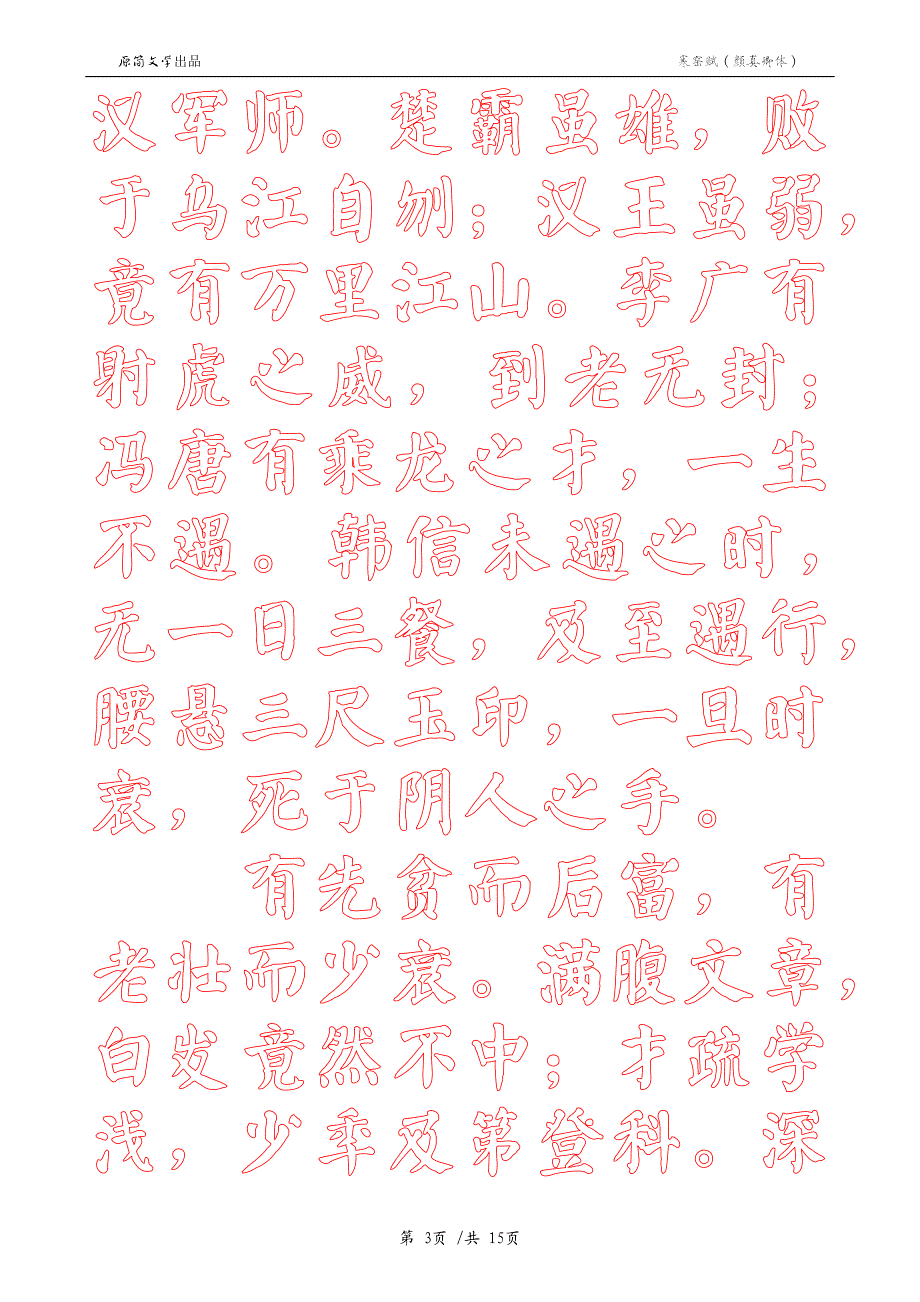 原简文学出品 寒窑赋（颜真卿体）
汉军师。楚霸虽雄，败
于乌江自刎；汉王虽弱，
竟有万里江山。李广有
射虎之威，到老无封；
冯唐有乘龙之才，一生
不遇。韩信未遇之时，
无一日三餐，及至遇行，
腰悬三尺玉印，一旦时
衰，死于阴人之手。
有先贫而后富，有
老壮而少衰。满腹文章，
白发竟然不中；才疏学
浅，少年及第登科。深
第 3页 /共 15页